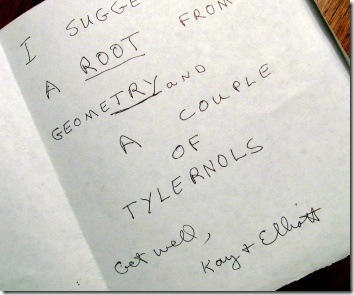 I SUGGE
A ROOT FROM
GEOMETRY AND
A COUPLE
OF
TYLERNOLS
Get well,
Kay + Elliott